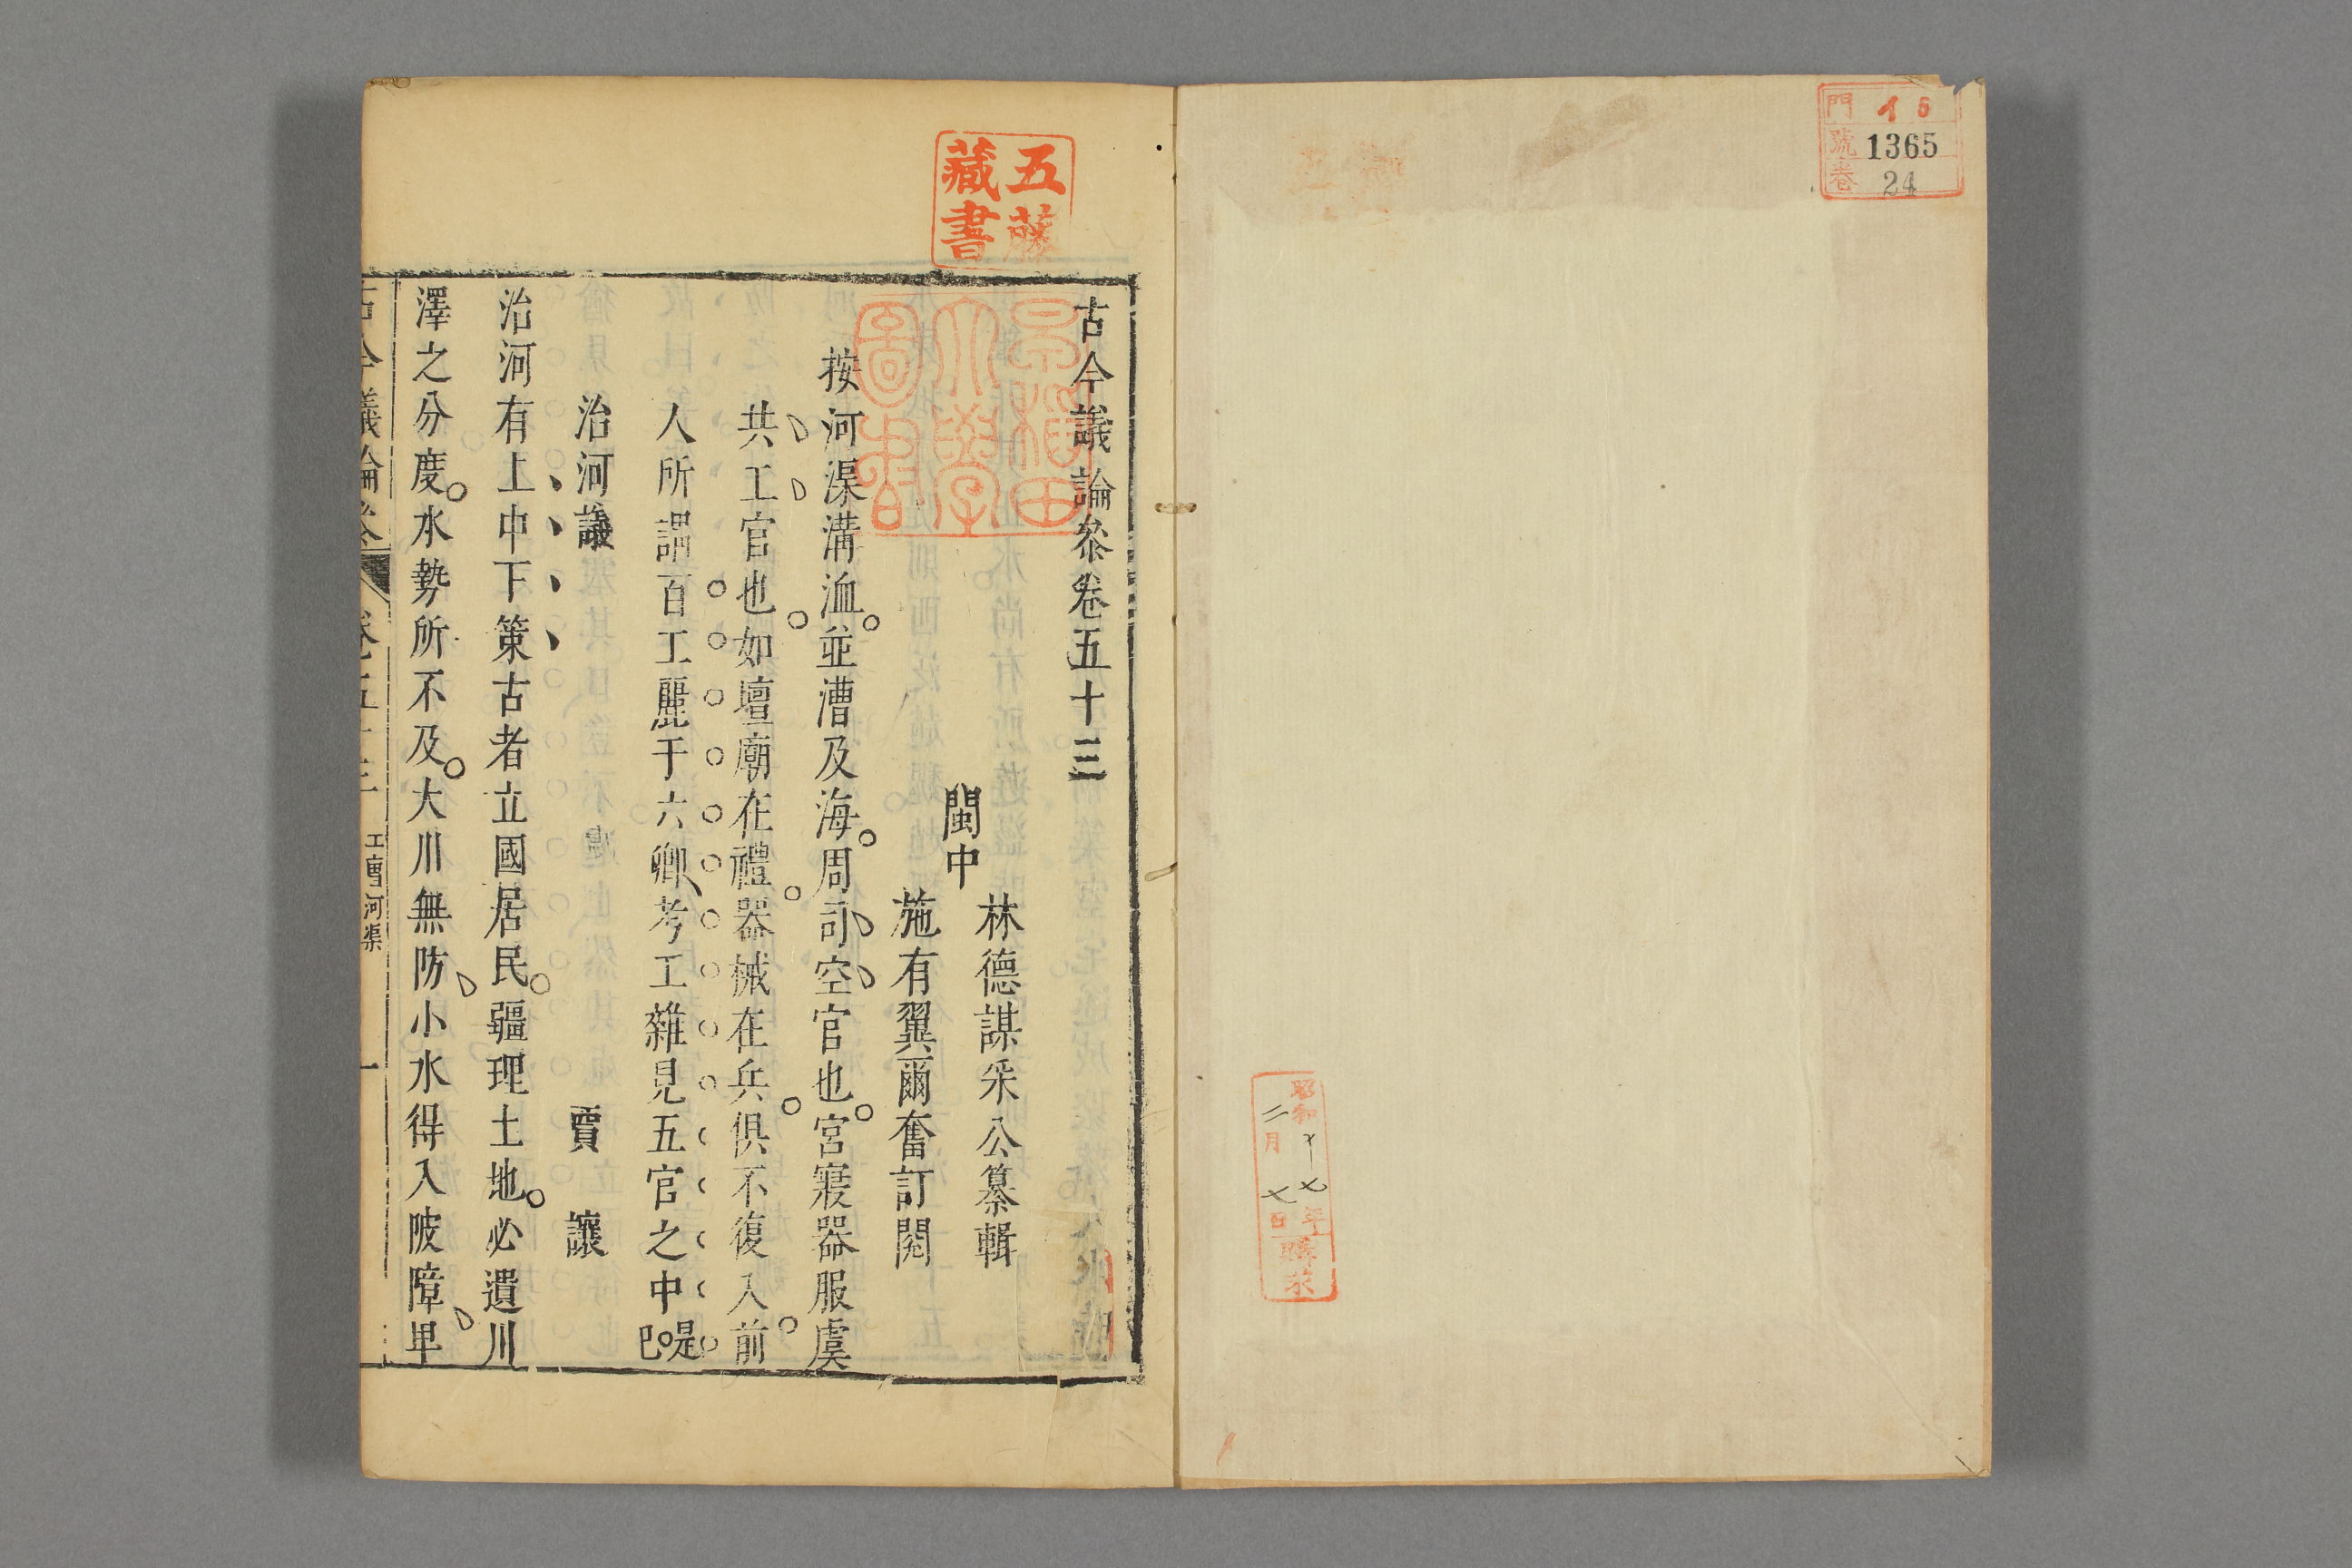 門 15
號 1365
卷 24
昭和十七年
二月七日
購求
五藤
藏書
早稻田
大學
圖書
古今議論叅卷五十三
閩中
林德謀采公纂輯
施有翼爾奮訂閱
按河渠溝洫並漕及海周司空官也宮寢器服虞
共工官也如壇廟在禮器械在兵俱不復入前
人所謂百工麗于六卿考工雜見五官之中是
已
治河議 賈讓
治河有上中下策古者立國居民疆理土地必遺川
澤之分度水勢所不及大川無防小水得入陂障卑
古今議論叅 卷五十三 工曹河渠 一